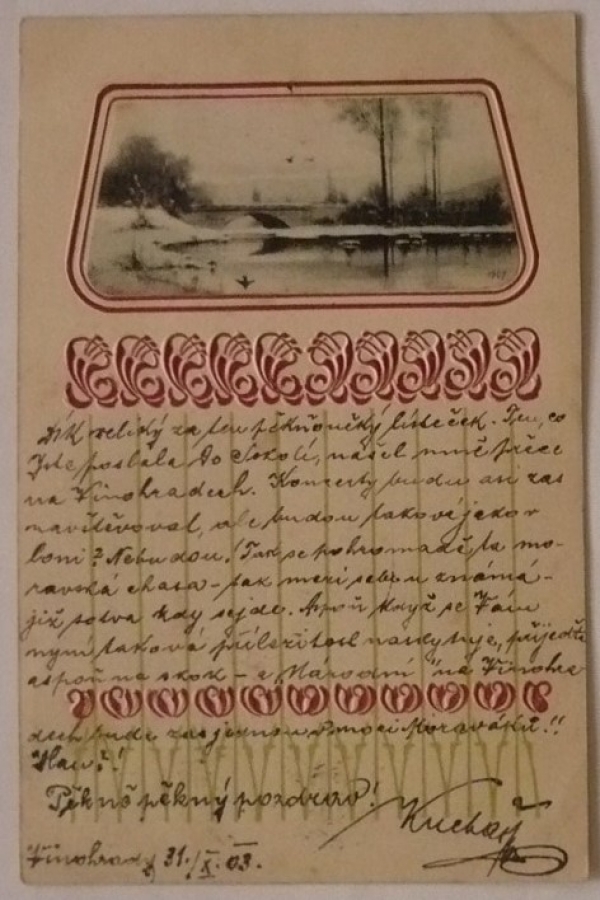 Dík veliký za ten pěkňoučký lísteček. Ten, co
Jste poslala do Sokolí, našel mně přece
na Vinohradech. Koncerty budu asi zas
navštěvoval, ale budou takové jako v
loni? Nebudou! Tak se pohromadě, ta mo-
ravská chasa – tak mezi sebou známá –
již sotva kdy sejde. Aspoň když se Vám
nyní taková příležitost naskytuje, přijeďte
aspoň na skok – a „Národní" na Vinohra
dech bude zas jednou Moraváků!!
Pěkně pěkný pozdrav!
Kuchař
Vinohrady 31./X. 03.